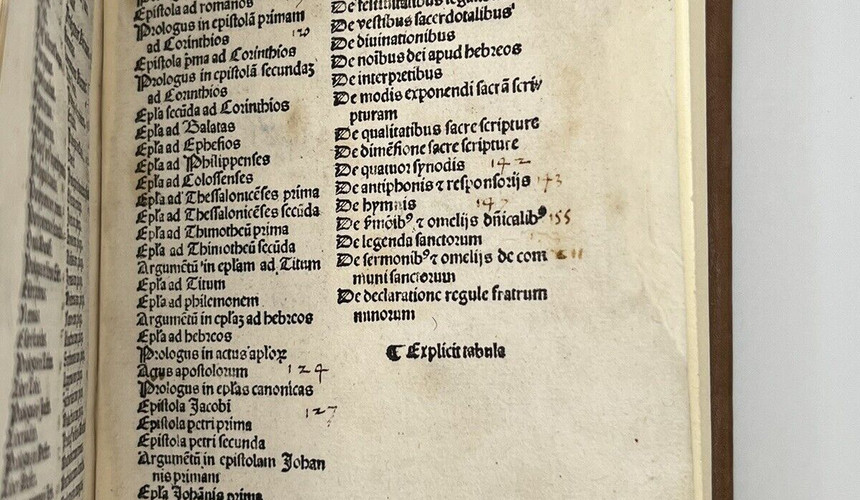 Epistola ad romanos
Prologus in epistolā primam
ad Corinthios 120
Epistola p̄ma ad Corinthios
Prologus in epistolā secundaȝ
ad Corinthios
Epl̄a secūda ad Corinthios
Epl̄a ad Galatas
Epl̄a ad Ephesios
Epl̄a ad Philippenses
Epl̄a ad Colossenses
Epl̄a ad Thessalonicēses prima
Epl̄a ad Thessalonicēses secūda
Epl̄a ad Thimotheū prima
Epl̄a ad Thimotheū secūda
Argumētū in epl̄am ad Titum
Epl̄a ad Titum
Epl̄a ad philemonem
Argumētū in epl̄aȝ ad hebreos
Epl̄a ad hebreos
Prologus in actus apl'oꝝ
Actus apostolorum 124
Prologus in epl̄as canonicas
Epistola Jacobi 127
Epistola petri prima
Epistola petri secunda
Argumētū in epistolam Johan
nis primam
Epl̄a Johānis prima
De vestibus sacerdotalibus
De diuinationibus
De noībus dei apud hebreos
De interpretibus
De modis exponendi sacrā scri
pturam
De qualitatibus sacre scripture
De dimēsione sacre scripture
De quatuor synodis 142
De antiphonis ⁊ responsorijs 143
De hymnis
De ẜmōibꝰ ⁊ omelijs dn̄icalibꝰ 155
De legenda sanctorum
De sermonibꝰ ⁊ omelijs de com
muni sanctorum
De declaratione regule fratrum
minorum
¶ Explicit tabula